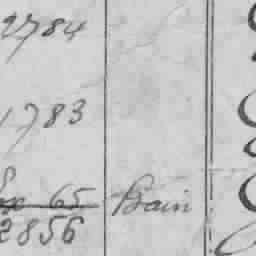 2784
1783
65 Bain
2856